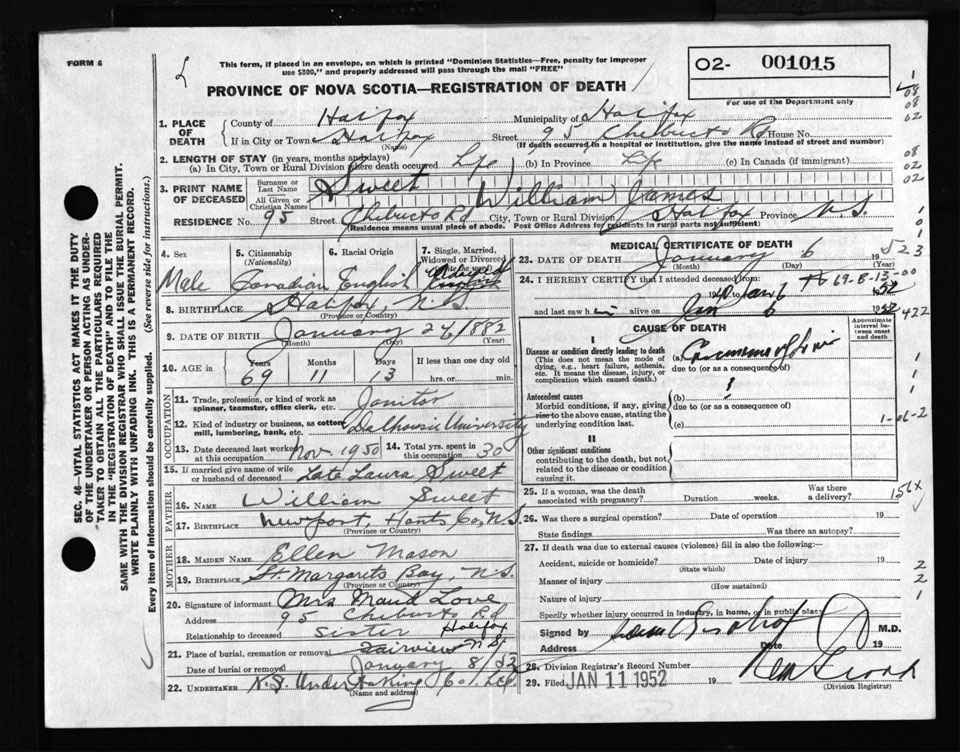 FORM 6
L
This form, if placed in an envelope, on which is printed "Dominion Statistics—Free, penalty for improper
use $300," and properly addressed will pass through the mail "FREE"
O2- 001015
For use of the Department only
PROVINCE OF NOVA SCOTIA—REGISTRATION OF DEATH
1. PLACE OF DEATH
County of Halifax Municipality of Halifax
If in City or Town Halifax Street 95 Chebucto Rd House No.
(Name) (If death occurred in a hospital or institution, give the name instead of street and number)
2. LENGTH OF STAY (in years, months and days)
(a) In City, Town or Rural Division where death occurred Life (b) In Province Life (c) In Canada (if immigrant)
3. PRINT NAME OF DECEASED
Surname or Last Name Sweet
All Given or Christian Names William James
RESIDENCE No. 95 Street Chebucto Rd City, Town or Rural Division Halifax Province N.S.
(Residence means usual place of abode. Post Office Address for residents in rural parts not sufficient)
4. Sex 5. Citizenship (Nationality) 6. Racial Origin 7. Single, Married, Widowed or Divorced
Male Canadian English
8. BIRTHPLACE Halifax, N.S.
(Province or Country)
9. DATE OF BIRTH January 24, 1882
(Month) (Day) (Year)
10. AGE in Years Months Days If less than one day old
69 11 13 hrs. or min.
OCCUPATION
11. Trade, profession or kind of work as spinner, teamster, office clerk, etc. Janitor
12. Kind of industry or business, as cotton mill, lumbering, bank, etc. Dalhousie University
13. Date deceased last worked at this occupation Nov. 1950 14. Total yrs. spent in this occupation 30
15. If married give name of wife or husband of deceased Late Laura Sweet
FATHER
16. NAME William Sweet
17. BIRTHPLACE Newport, Hants Co, N.S.
(Province or Country)
MOTHER
18. MAIDEN NAME Ellen Mason
19. BIRTHPLACE St. Margarets Bay, N.S.
(Province or Country)
20. Signature of informant Mrs Maud Love
Address 95 Chebucto Rd
Halifax
Relationship to deceased sister
21. Place of burial, cremation or removal Fairview N.S
Date of burial or removal January 8/52
22. UNDERTAKER N.S. Undertaking Co. Ltd.
(Name and address)
MEDICAL CERTIFICATE OF DEATH
23. DATE OF DEATH January 6 19
(Month) (Day) (Year)
24. I HEREBY CERTIFY that I attended deceased from:
69-B-13-00
and last saw h alive on Jan 6 1952
422
CAUSE OF DEATH
Approximate interval between onset and death
I
Disease or condition directly leading to death (a)
(This does not mean the mode of dying, e.g., heart failure, asthenia, etc. It means the disease, injury, or complication which caused death.)
due to (or as a consequence of)
Antecedent causes (b)
Morbid conditions, if any, giving rise to the above cause, stating the underlying condition last.
due to (or as a consequence of)
(c)
1-06-2
II
Other significant conditions
contributing to the death, but not related to the disease or condition causing it.
25. If a woman, was the death associated with pregnancy? Duration weeks. Was there a delivery?
26. Was there a surgical operation? Date of operation 19
State findings Was there an autopsy?
27. If death was due to external causes (violence) fill in also the following:—
Accident, suicide or homicide? Date of injury 19
(State which)
Manner of injury
(How sustained)
Nature of injury
Specify whether injury occurred in industry, in home, or in public place
Signed by M.D.
Address Date 19
28. Division Registrar's Record Number
29. Filed JAN 11 1952 19
(Division Registrar)
SEC. 46—VITAL STATISTICS ACT MAKES IT THE DUTY
OF THE UNDERTAKER OR PERSON ACTING AS UNDER-
TAKER TO OBTAIN ALL THE PARTICULARS REQUIRED
IN THE "REGISTRATION OF DEATH" AND TO FILE THE
SAME WITH THE DIVISION REGISTRAR WHO SHALL ISSUE THE BURIAL PERMIT.
WRITE PLAINLY WITH UNFADING INK. THIS IS A PERMANENT RECORD.
Every item of Information should be carefully supplied. (See reverse side for instructions.)